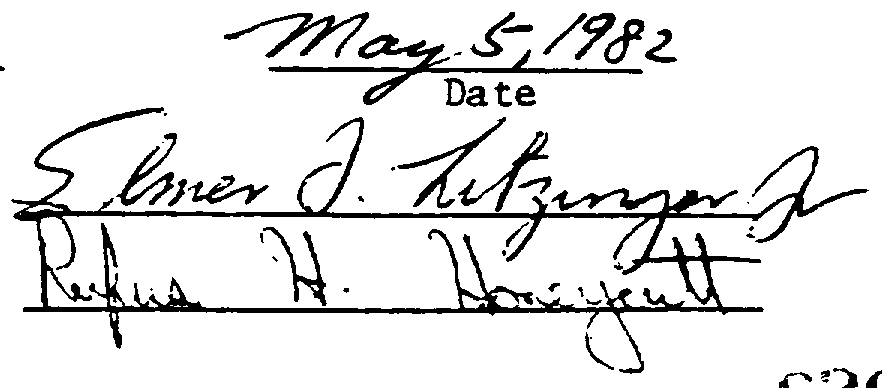 May 5, 1982
Date
Elmer J. Litzinger Jr
Rufus H. Honeycutt